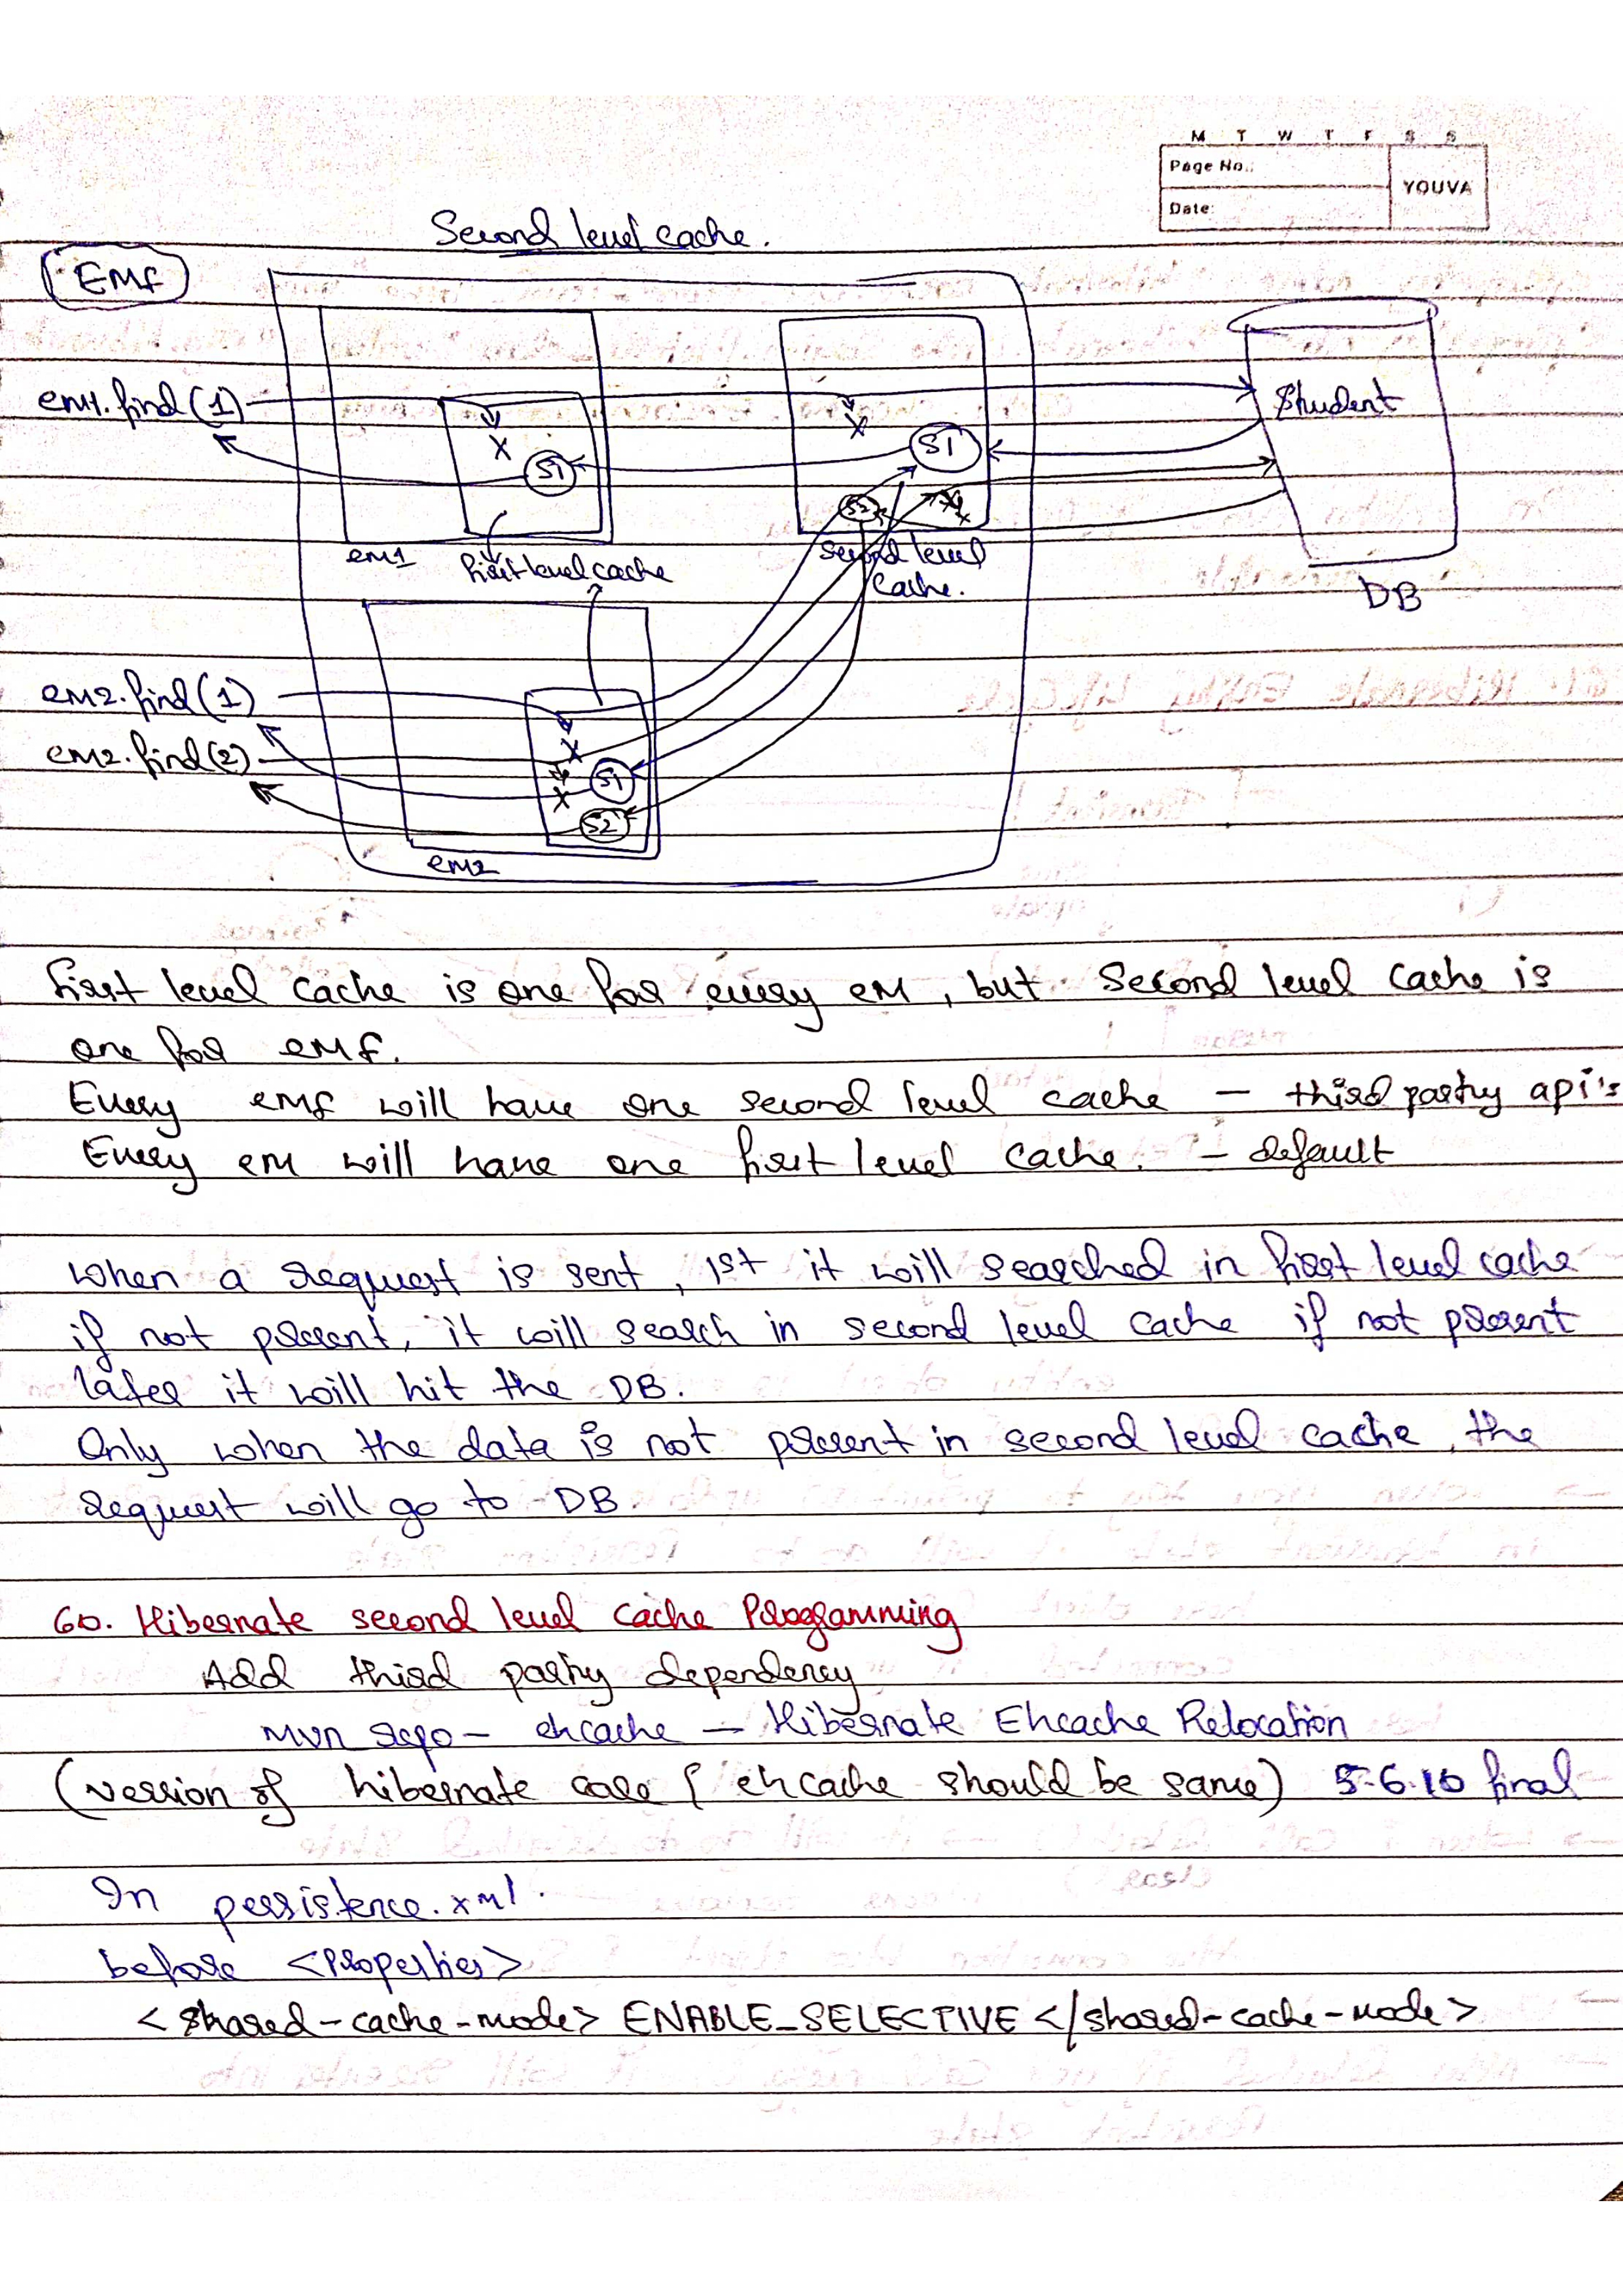 M T W T F S S
Page No.:
YOUVA
Date:
Second level cache.
EMF
em1.find(1)
X
S1
X
S1
Student
S2
em1
first level cache
second level
cache.
DB
em2.find(1)
em2.find(2)
X
X
S1
S2
em2
first level cache is one for every em, but second level cache is
one for emf.
Every emf will have one second level cache - third party api's
Every em will have one first level cache. - default
when a request is sent, 1st it will searched in first level cache
if not present, it will search in second level cache if not present
later it will hit the DB.
Only when the data is not present in second level cache, the
request will go to DB.
60. Hibernate second level cache Programming
Add third party dependency
mvn repo - ehcache - Hibernate Ehcache Relocation
(version of hibernate core & ehcache should be same) 5.6.10 final
In persistence.xml.
before <Properties>
<shared-cache-mode> ENABLE_SELECTIVE </shared-cache-mode>